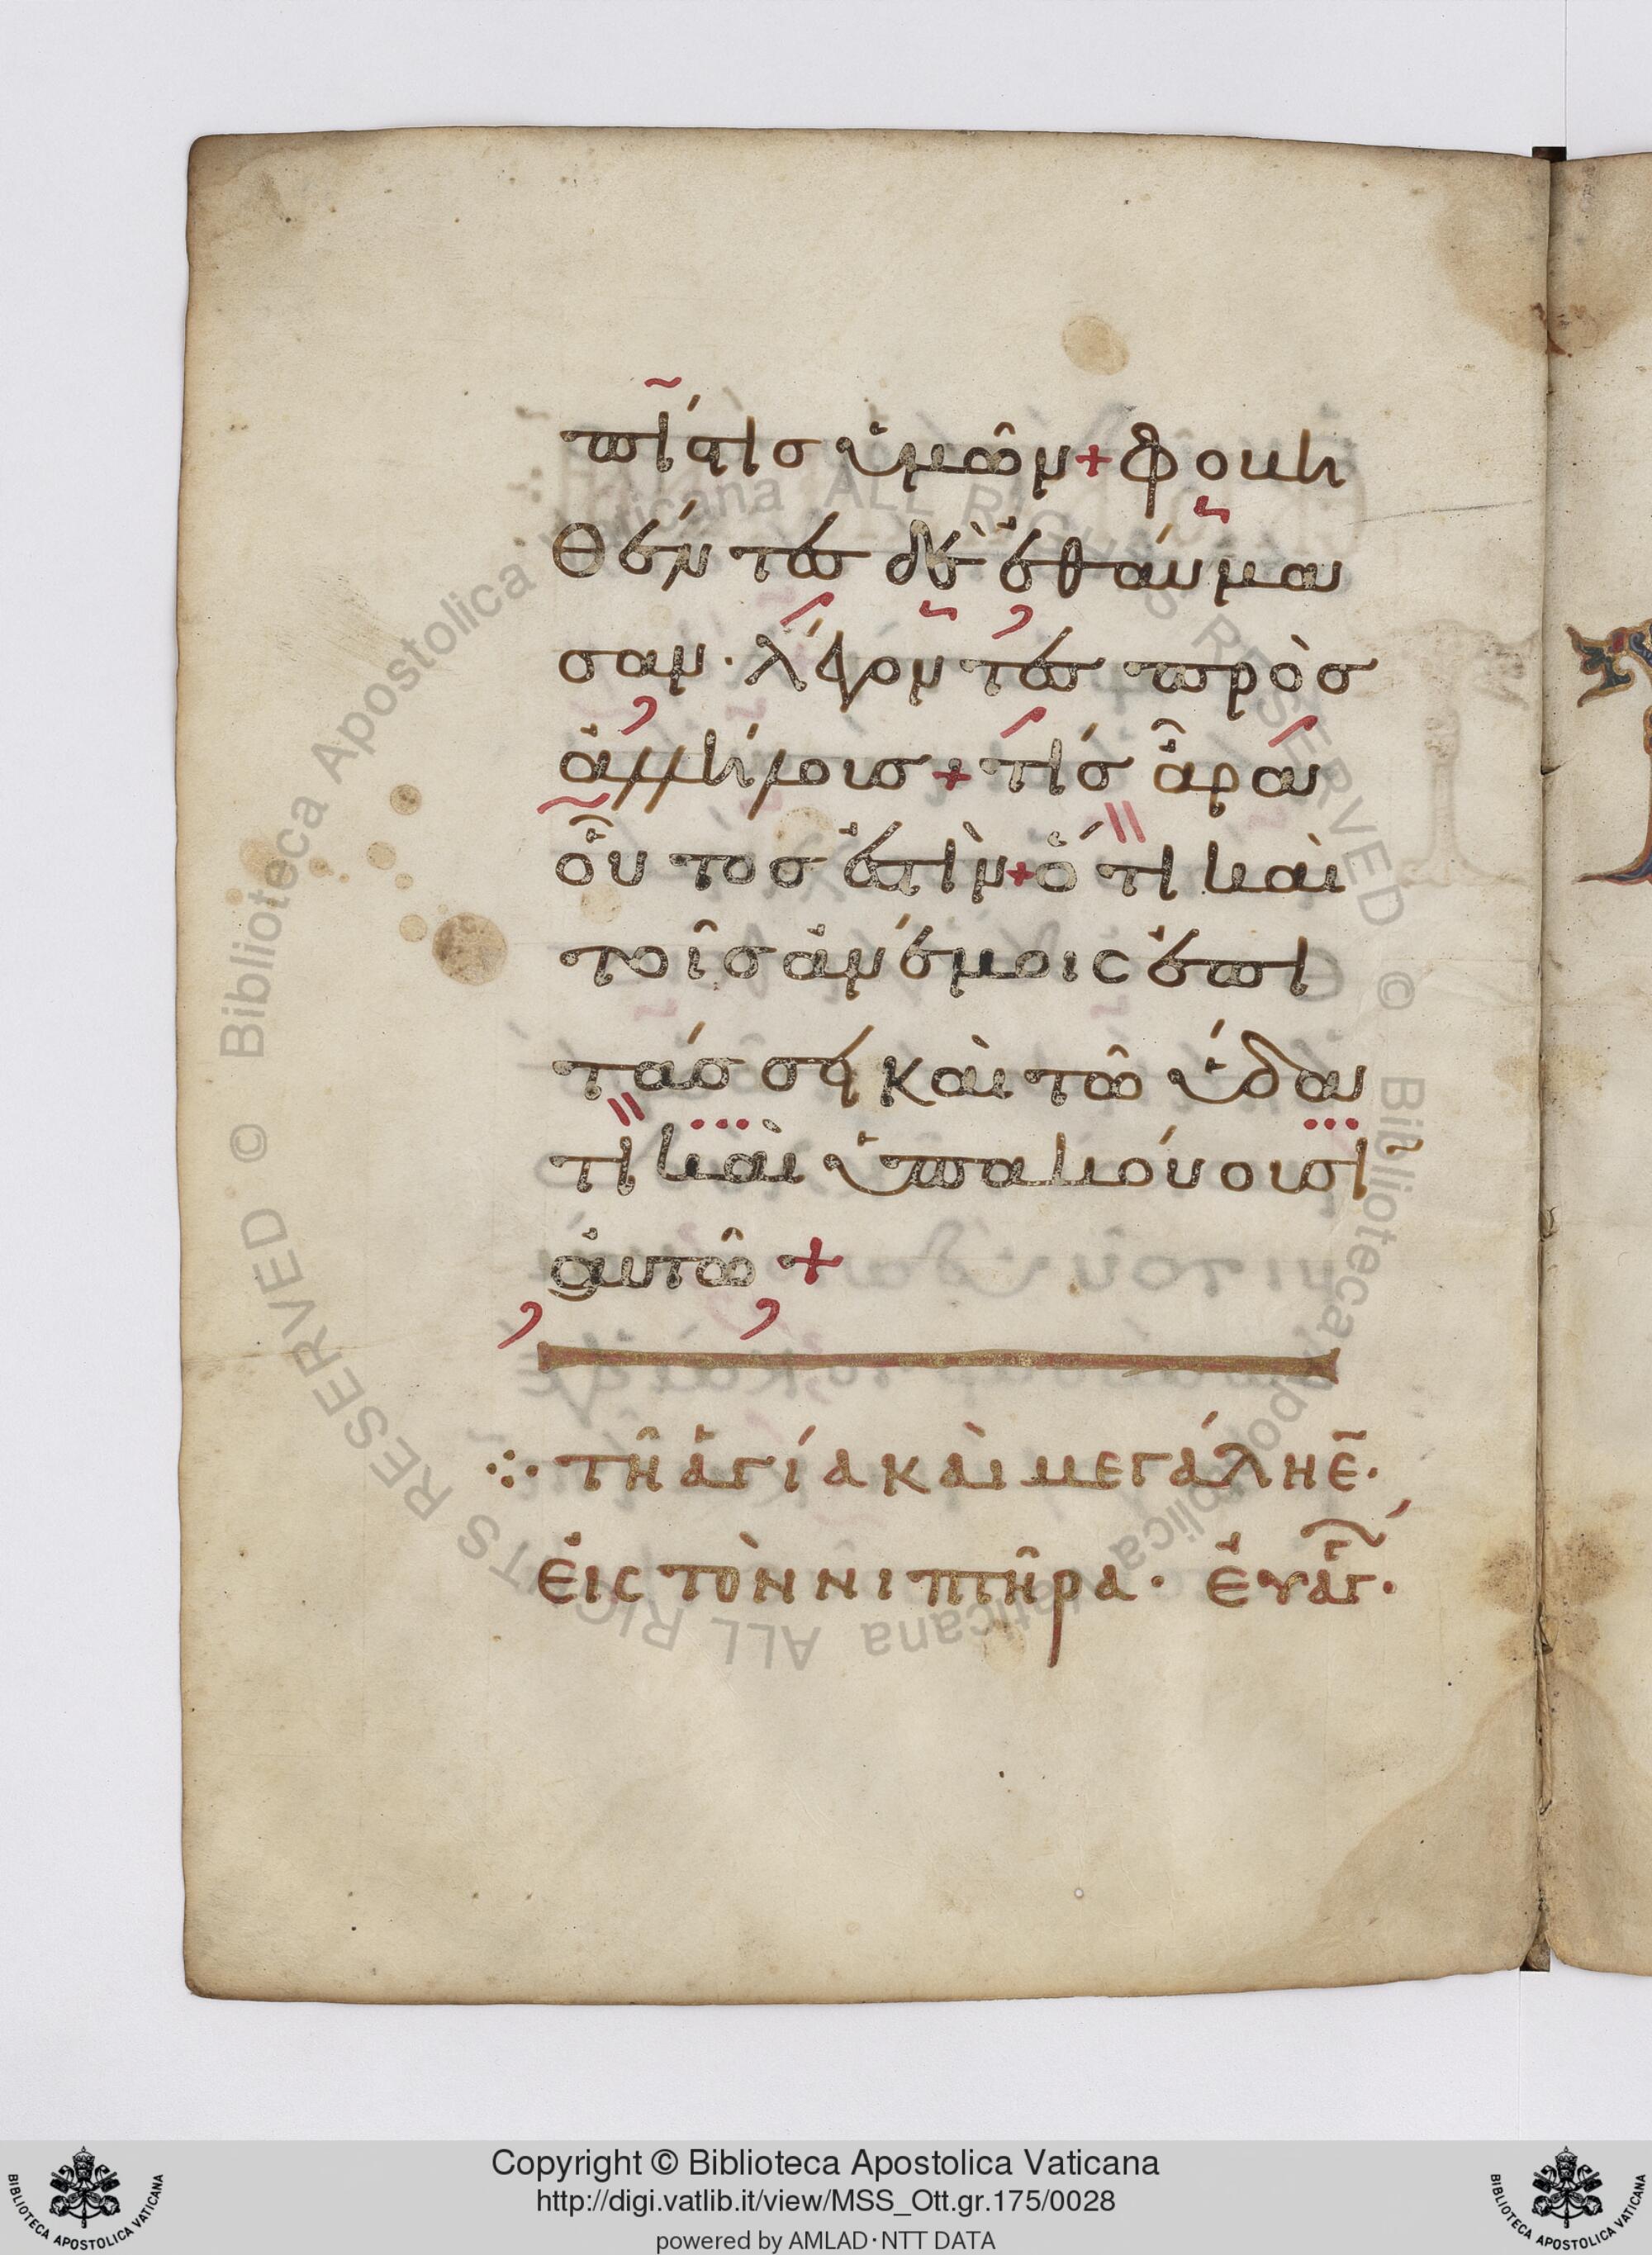 πίστις ὑμῶν + φοβη
θέντες δὲ ἐθαύμα
σαν · λέγοντες πρὸς
ἀλλήλους + τίς ἄρα
οὗτος ἐστὶν + ὅτι καὶ
τοῖς ἀνέμοις ἐπι
τάσσει καὶ τῶ ὕδα
τι καὶ ὑπακούουσι
ἀυτῶ +
τῆ ἁγία καὶ μεγάλη ε̄ ·
ἐις τὸν νιπτῆρα · ἐυαγ ·
Copyright © Biblioteca Apostolica Vaticana
http://digi.vatlib.it/view/MSS_Ott.gr.175/0028
powered by AMLAD·NTT DATA
BIBLIOTECA APOSTOLICA VATICANA
BIBLIOTECA APOSTOLICA VATICANA
© Biblioteca Apostolica Vaticana ALL RIGHTS RESERVED
© Biblioteca Apostolica Vaticana ALL RIGHTS RESERVED